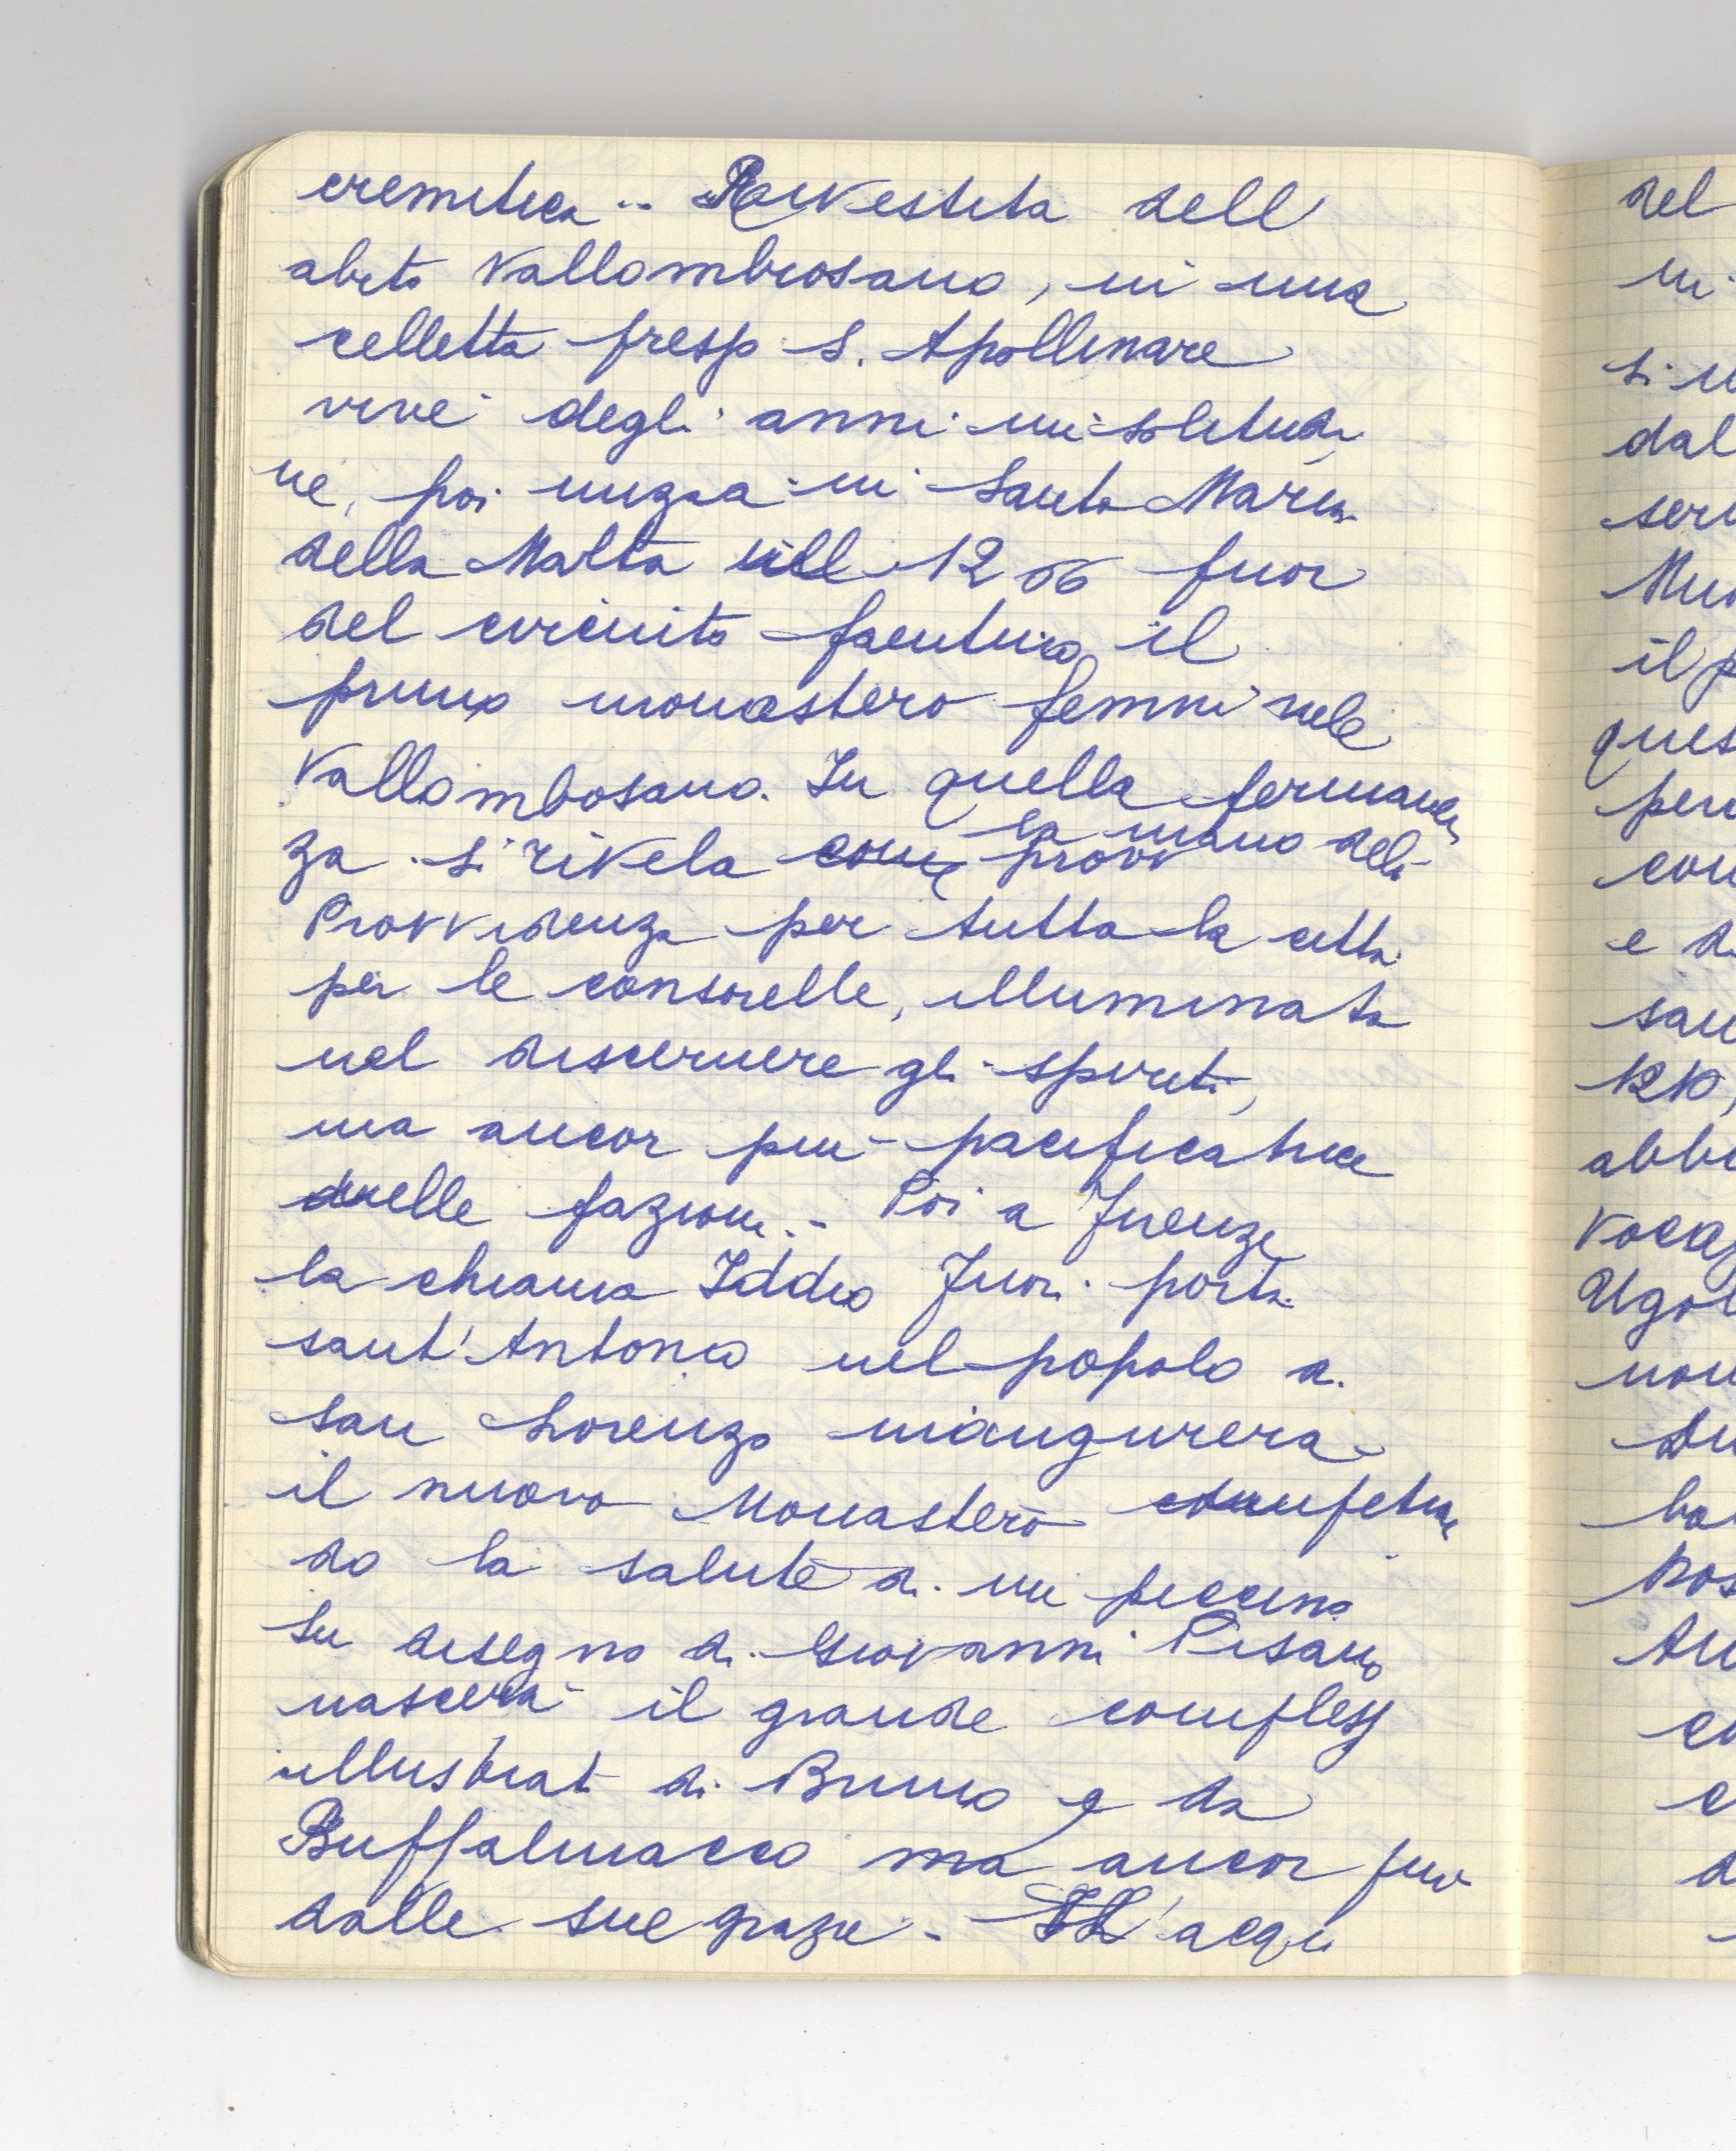 eremitica.. Rivestita dell'
abito Vallombrosano, in una
celletta presso S. Apollinare
vive degli anni in solitudi
ne, poi inizia in Santa Maria
della Malta nell 1206 fuor
del circuito faentino il
primo monastero femminile
Vallombosano. In quella permanen
za si rivela come la mano della
Provvidenza per tutta la città
per le consorelle, illuminata
nel discernere gli spiriti,
ma ancor più pacificatrice
delle fazioni.- Poi a Firenze
la chiama Iddio fuori porta
sant'Antonio nel popolo di
san Lorenzo inaugurera
il nuovo Monastero
do la salute di un piccino
Su disegno di Giovanni Pisano
nascerà il grande complesso
illustrat di Bruno e da
Buffalmacco ma ancor più
dalle sue grazie. L'acqu
del
in
si
dal
Mu
il p
ques
per
con
e di
san
1210,
abb
voca
Ugol
non